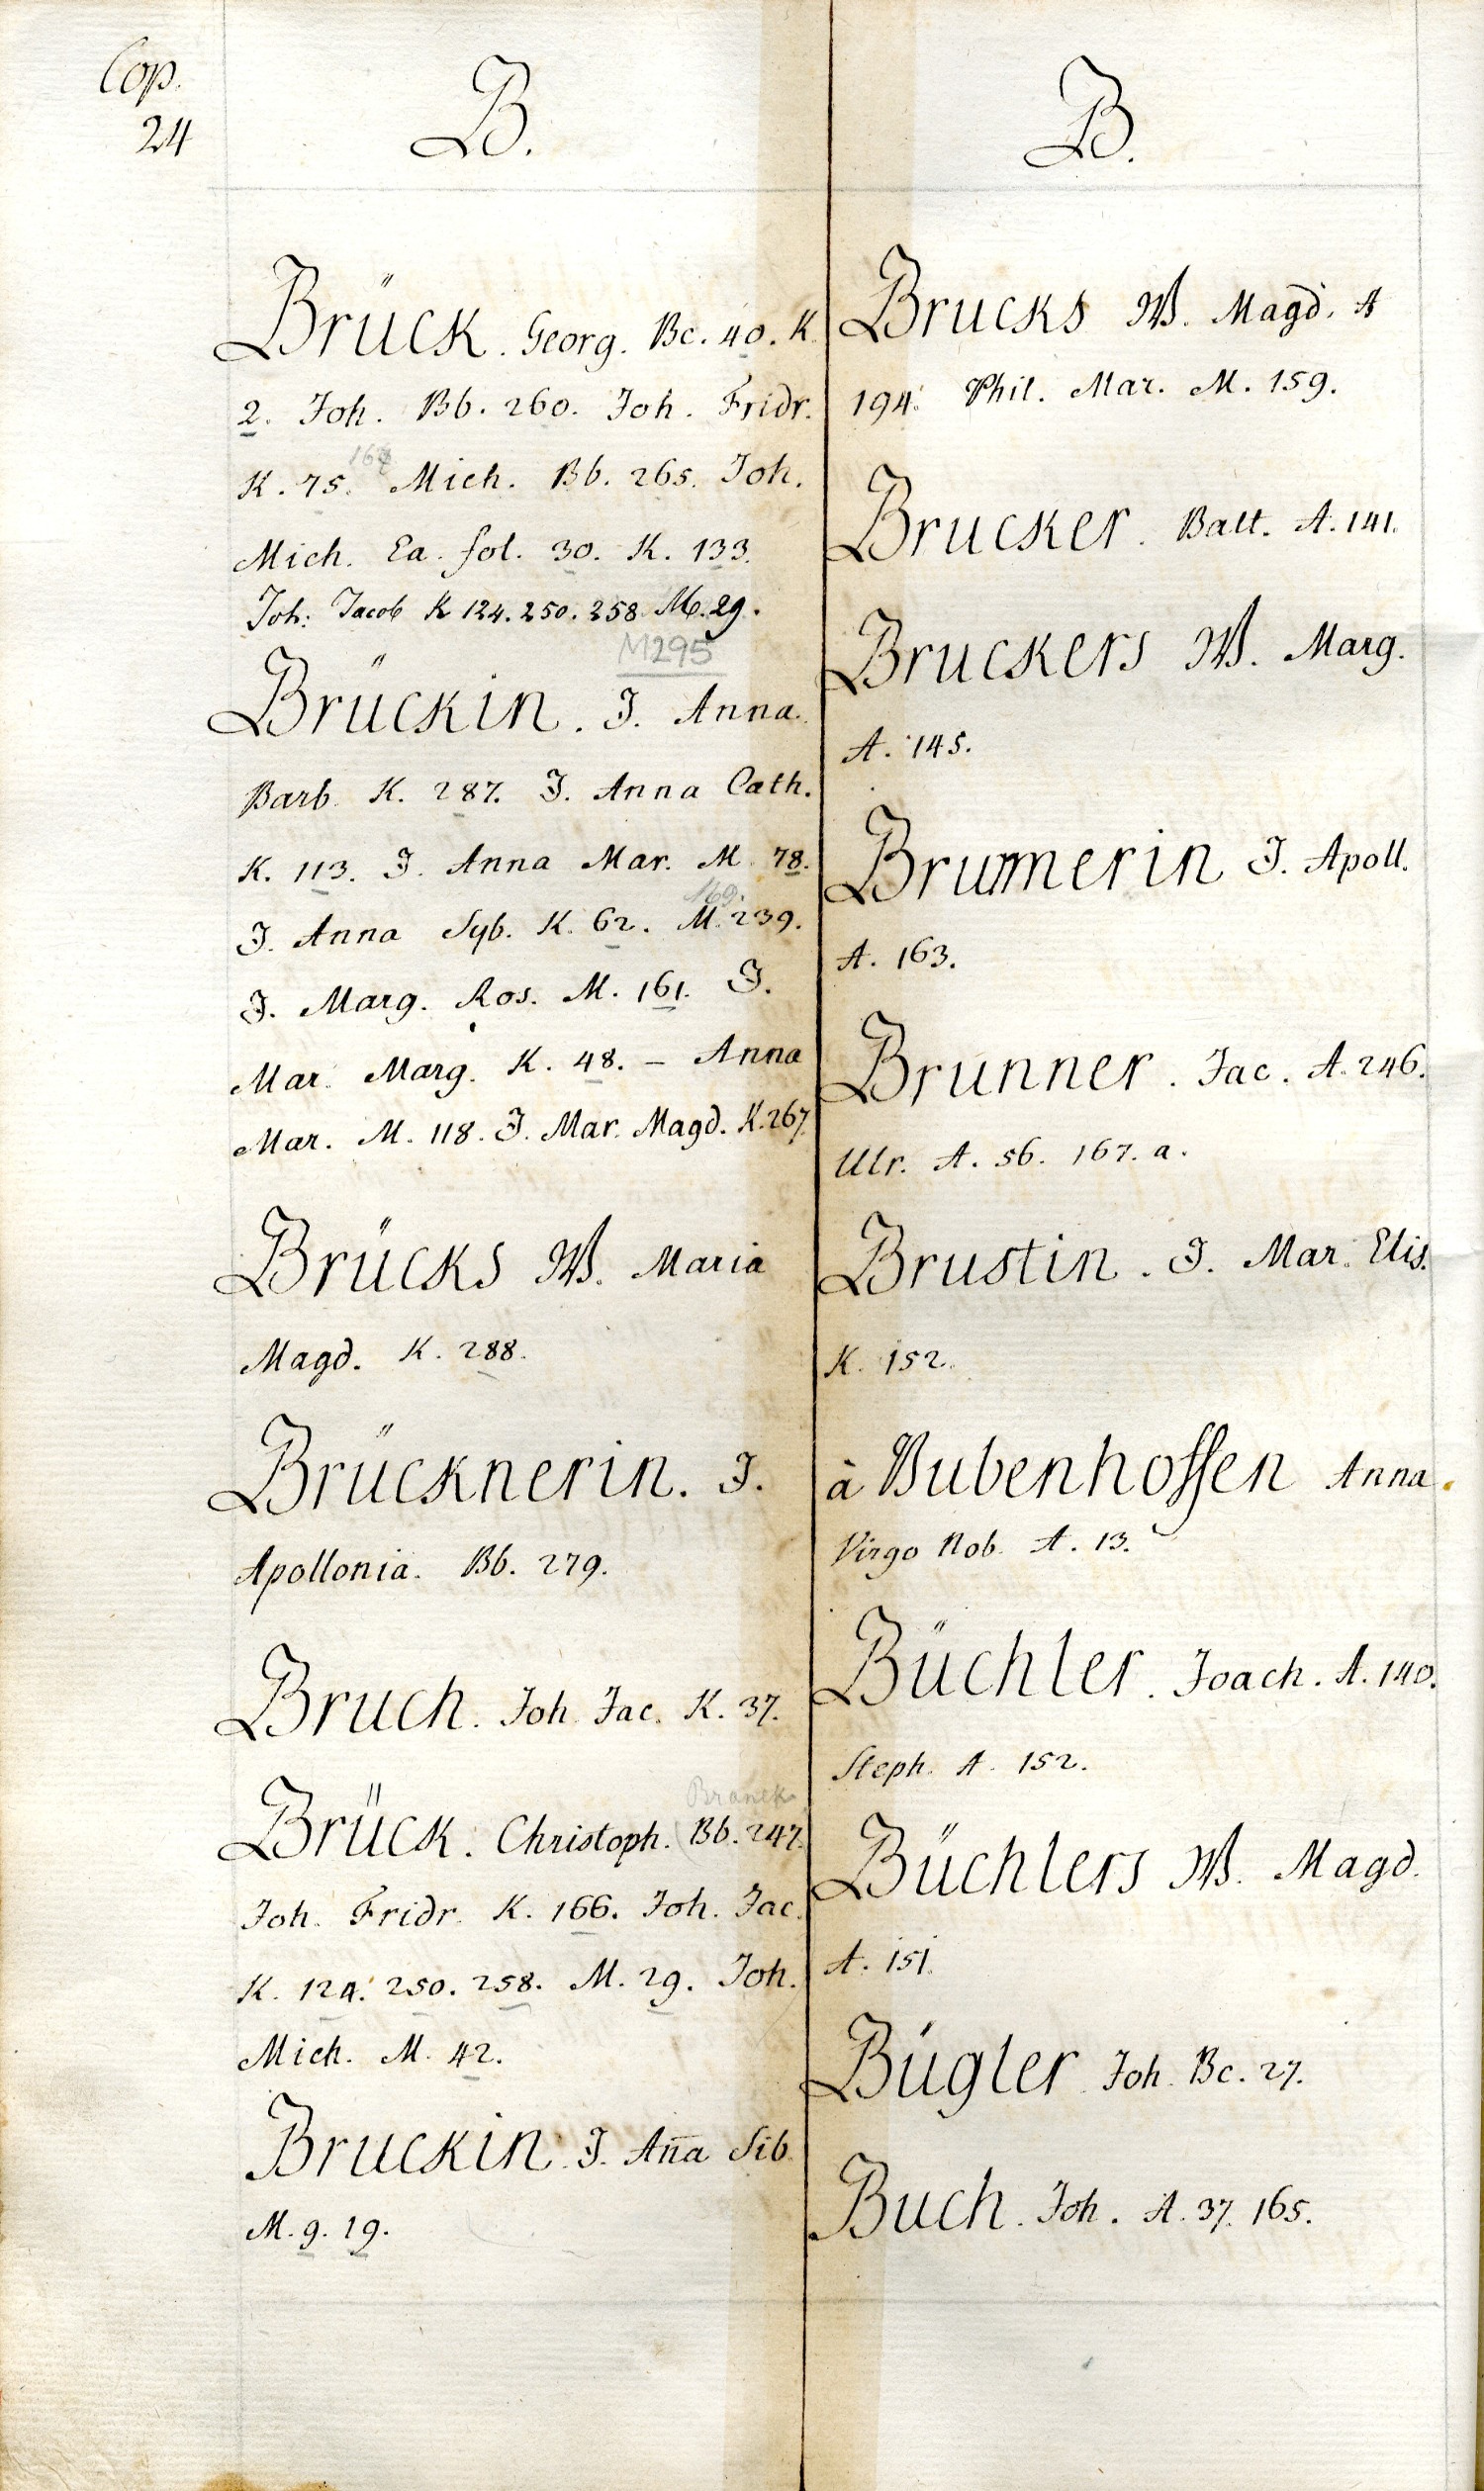 Cop.
24
B.
Brück. Georg. Bc. 40. K.
2. Joh. Bb. 260. Joh. Fridr.
K. 75. Mich. Bb. 265. Joh.
Mich. Ea. fol. 30. K. 133.
Joh: Jacob K 124. 250. 258 M. 29.
M295
Brückin. J. Anna
Barb. K. 287. J. Anna Cath.
K. 113. J. Anna Mar. M. 78.
169.
J. Anna Syb. K. 62. M. 239.
J. Marg. Ros. M. 161. J.
Mar. Marg. K. 48. – Anna
Mar. M. 118. J. Mar. Magd. K. 267
Brücks W. Maria
Magd. K. 288.
Brücknerin. J.
Apollonia. Bb. 279.
Bruch. Joh. Jac. K. 37.
Brück. Christoph. (Bb. 247.
Joh. Fridr. K. 166. Joh. Jac.
K. 124. 250. 258. M. 29. Joh.
Mich. M. 42.
Bruckin. J. Anna Sib.
M. 9. 19.
B.
Brucks W. Magd. A
194. Phil. Mar. M. 159.
Brucker. Balt. A. 141.
Bruckers W. Marg.
A. 145.
Brummerin J. Apoll.
A. 163.
Brunner. Jac. A. 246.
Ulr. A. 56. 167. a.
Brustin. J. Mar. Elis.
K. 152.
à Bubenhoffen Anna
Virgo Nob. A. 13.
Büchler. Joach. A. 140.
Steph. A. 152.
Büchlers W. Magd.
A. 151.
Bügler Joh. Bc. 27.
Buch. Joh. A. 37. 165.